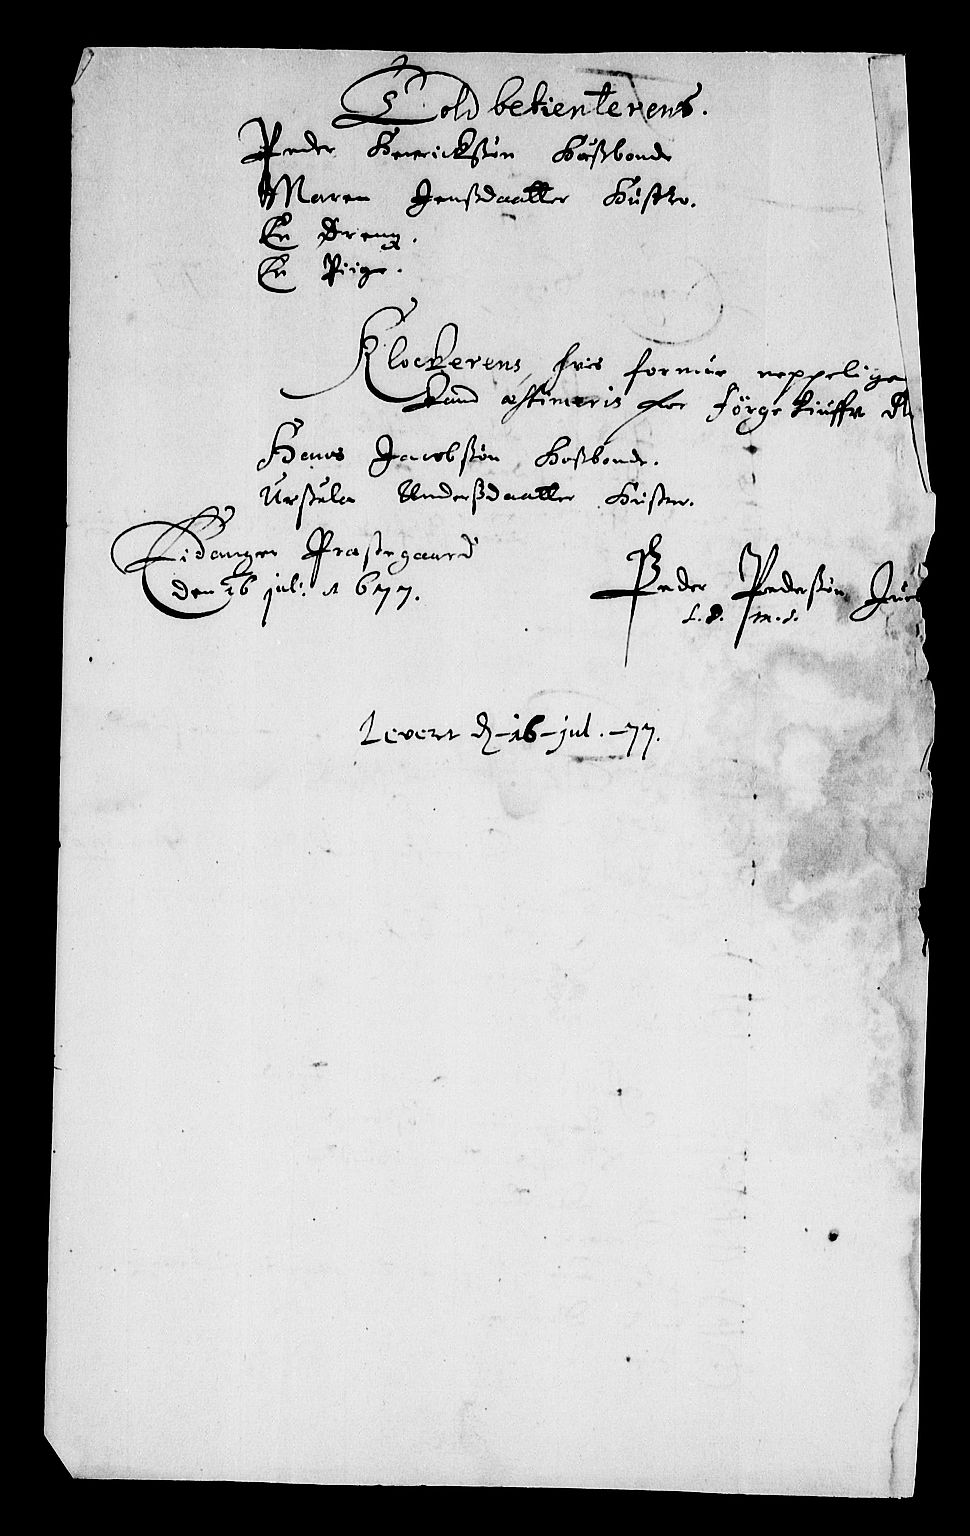 Told betienterens.
Peder Henrickssøn Hosbonde
Maren Jenssdaatter Hustro.
En Dreng.
En Piige.
Klockerens, hvis formue neppeligen
kand æstimeris for Førgetiuffve
Hans Jacobssøn Hosbonde.
Ursula Anderssdaatter Hustro.
Eidanger Præstegaard
den 16 jul: 1677.
Peder Pederssøn
m.s.
Levert d -16- jul. -77.